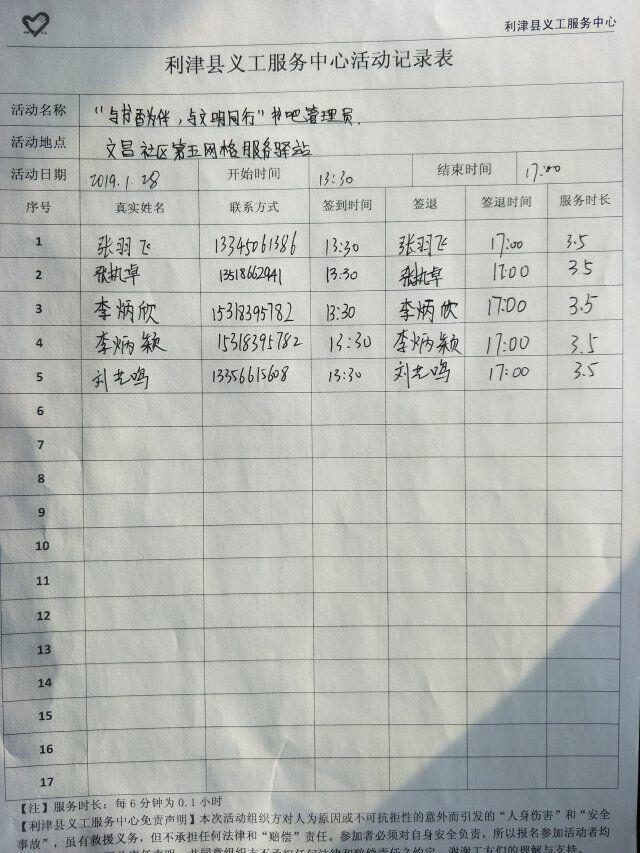 利津县义工服务中心
利津县义工服务中心活动记录表
活动名称 "与书香为伴，与文明同行"书吧管理员.
活动地点 文昌社区第五网格服务驿站
活动日期 2019.1.28 开始时间 13:30 结束时间 17:00
序号 真实姓名 联系方式 签到时间 签退 签退时间 服务时长
1 张羽飞 13345061386 13:30 张羽飞 17:00 3.5
2 张执卓 13518662941 13:30 张执卓 17:00 3.5
3 李炳欣 15318395782 13:30 李炳欣 17:00 3.5
4 李炳颖 15318395782 13:30 李炳颖 17:00 3.5
5 刘艺鸣 13356615608 13:30 刘艺鸣 17:00 3.5
6
7
8
9
10
11
12
13
14
15
16
17
【注】服务时长：每6分钟为0.1小时
【利津县义工服务中心免责声明】本次活动组织方对人为原因或不可抗拒性的意外而引发的"人身伤害"和"安全
事故"，虽有救援义务，但不承担任何法律和"赔偿"责任。参加者必须对自身安全负责，所以报名参加活动者均